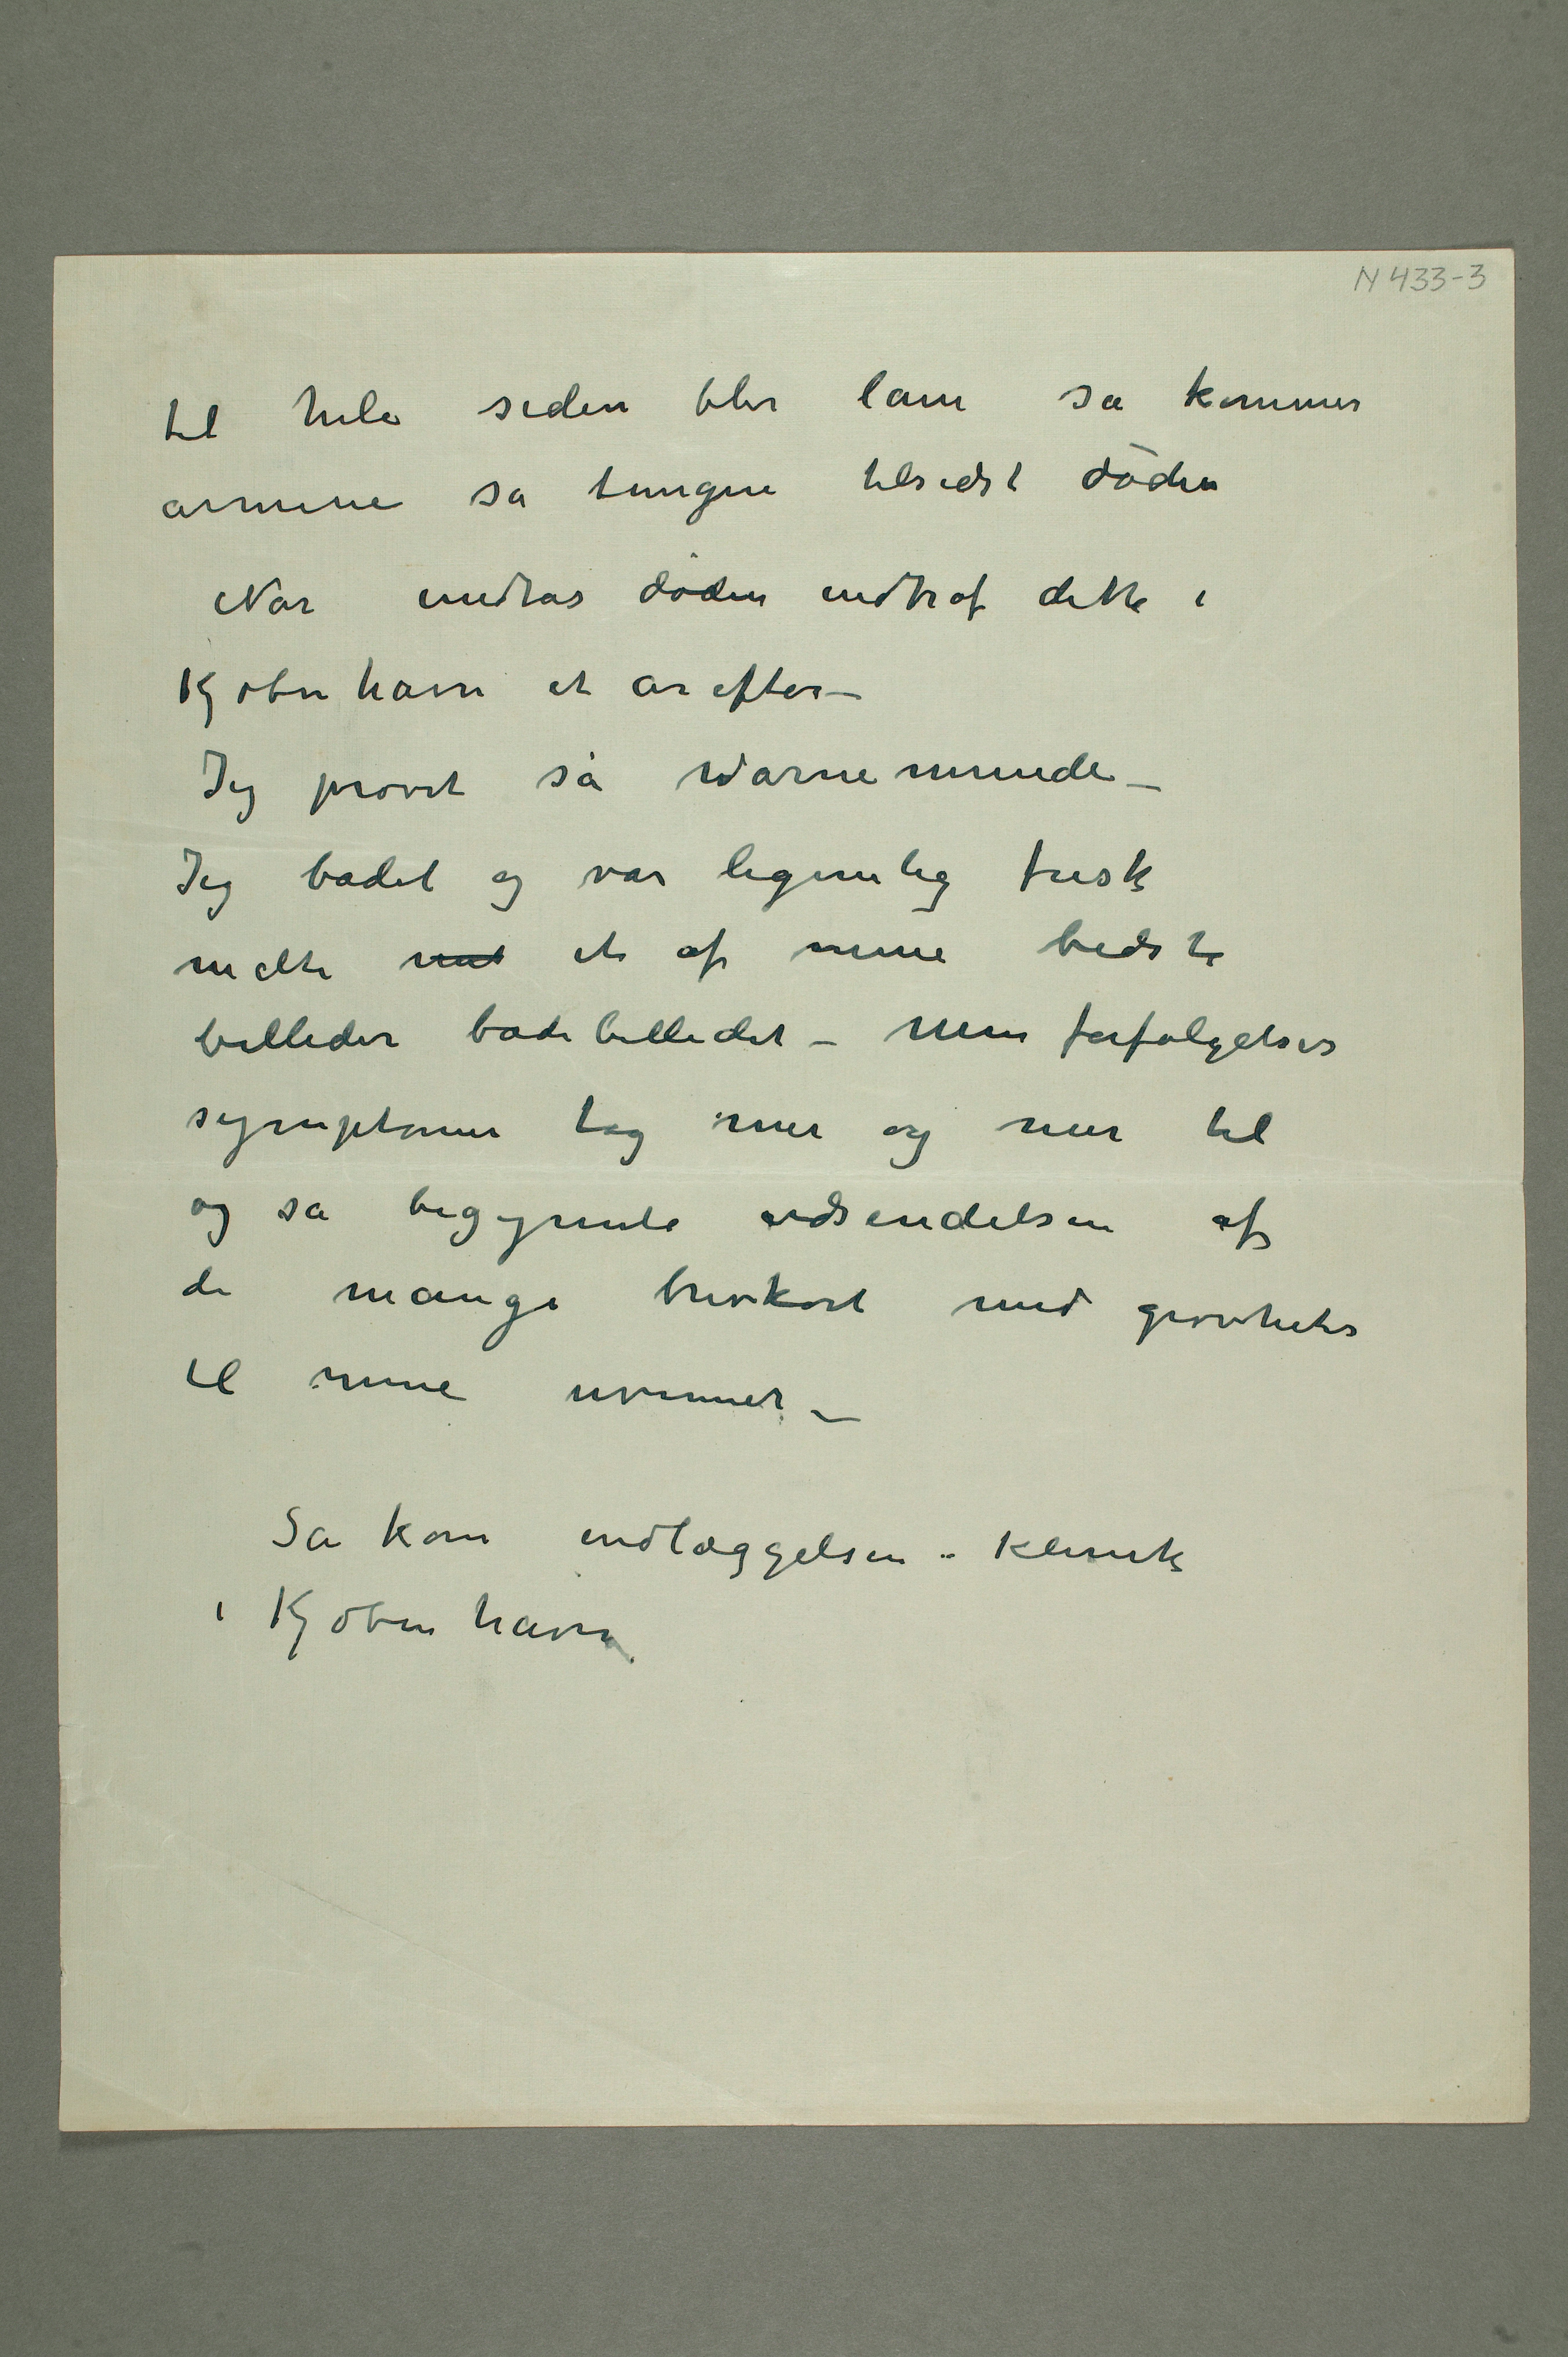 N 433-3
til hele siden blir lam så kommer
armene så tungen tilsidst döden
Når undtas döden indtraf dette i
Kjøbenhavn et år efter –
Jeg prøvet så Warnemunde –
Jeg badet og var legemlig frisk
malte et af mine bedste
billeder badebilledet – Men forfølgelses
symptomer tog mer og mer til
og så begyndte udsendelsen af
de mange brevkort med grovheter
til mine uvenner –
Så kom indlæggelsen – klinik
i Kjøbenhavn